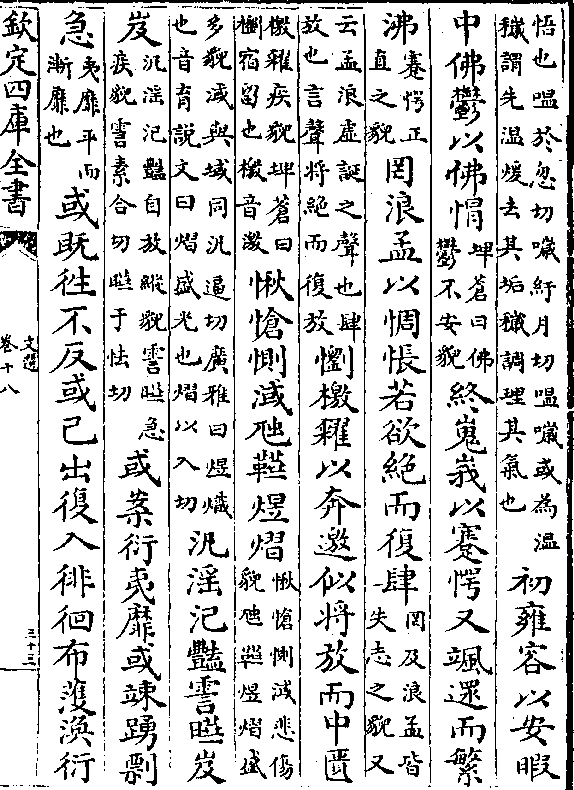 悟也嗢於忽切噦紆月切嗢噦或為溫
穢謂先温煖去其垢穢調理其氣也
初雍容以安暇
中佛鬱以佛愲
埤蒼曰佛
鬱不安貌
終嵬峩以蹇愕又颯遝而繁
沸
蹇愕正
直之貌
罔浪孟以惆悵若欲絶而復肆
罔及浪孟皆
失志之貌又
云孟浪虚誕之聲也肆
放也言聲將絶而復放
懰檄糴以奔邀似將放而中匱
檄糴疾貌埤蒼曰
檄音激
愀愴惻淢虺韡煜熠
愀愴惻淢悲傷
貌虺韡煜熠盛
多貌淢與域同汎逼切廣雅曰煜熾
也音育説文曰熠盛光也熠以入切
汎淫汜豔霅曄岌
岌
汎淫汜豔自放縱貌霅曄岌急
疾貌霅素合切曄于怯切
或案衍夷靡或竦踴剽
急
夷靡平而
漸靡也
或既往不反或已出復入徘徊布濩渙衍
欽定四庫全書
文選
卷十八
三十三